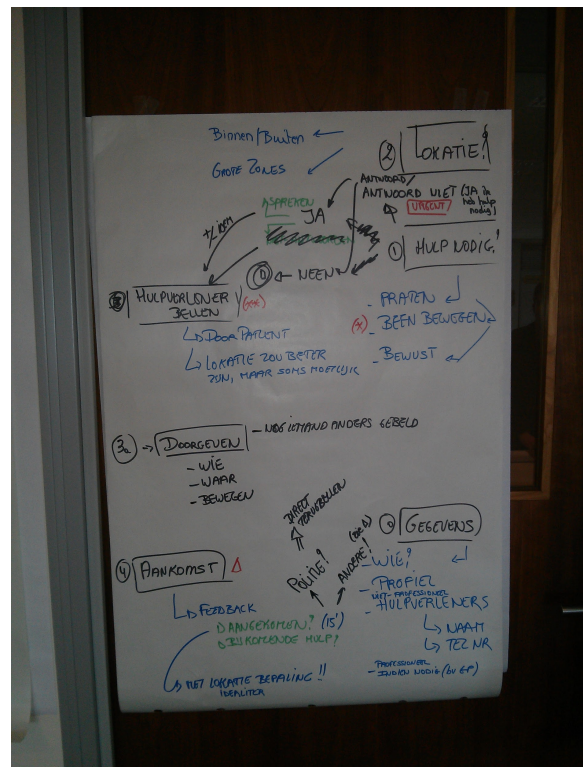 Binnen/Buiten
GROTE ZONES
2 LOKATIE?
ANTWOORD/
ANTWOORD NIET (JA ik
heb hulp
nodig)
URGENT
AFSPREKEN
JA
1 HULP NODIG?
0 ← NEEN
3 HULPVERLENER
BELLEN
(**)
↳ DOOR PATIENT
↳ LOKATIE ZOU BETER
ZIJN, MAAR SOMS MOEILIJK
- PRATEN
(*) - BEEN BEWEGEN
- BEWUST
3a → DOORGEVEN
- NOG IEMAND ANDERS GEBELD
- WIE
- WAAR
- BEWEGEN
DIRECT
TERUGBELLEN
POLITIE?
ANDERE!
4 AANKOMST
↳ FEEDBACK
AANGEKOMEN? (15')
BIJKOMENDE HULP?
↳ MET LOKATIE BEPALING!!
IDEALITER
0 GEGEVENS
- WIE?
- PROFIEL
NIET-PROFESSIONEEL
- HULPVERLENERS
↳ NAAM
↳ TEL NR
PROFESSIONEEL
- INDIEN NODIG